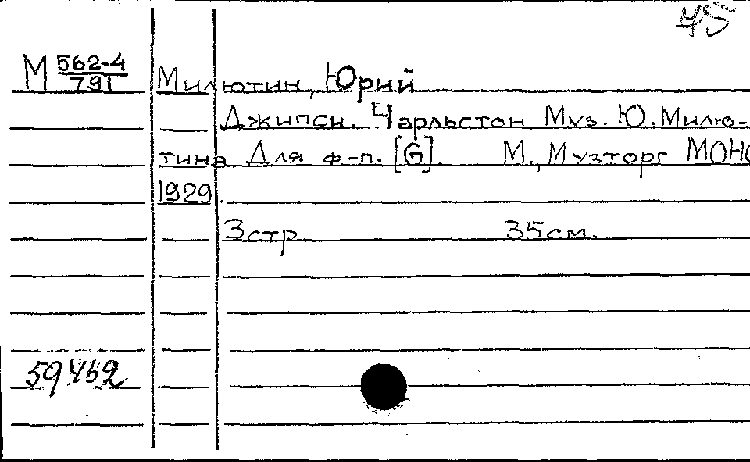 45
М 562-4/791 Милютин, Юрий
Джипси. Чарльстон Муз. Ю. Милю-
тина Для ф-п. [G]. М., Музторг МОНО
1929.
3 стр 35 см.
59452